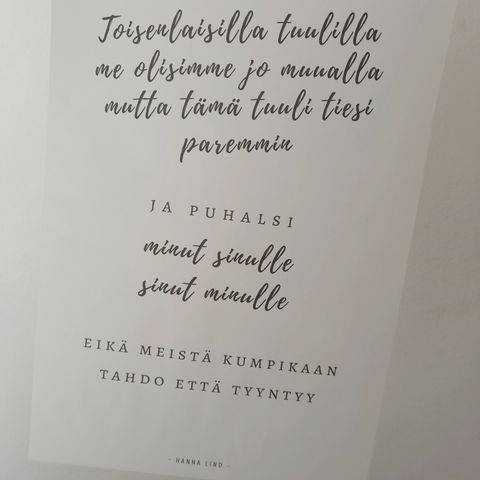 Toisenlaisilla tuulilla
me olisimme jo muualla
mutta tämä tuuli tiesi
paremmin
JA PUHALSI
minut sinulle
sinut minulle
EIKÄ MEISTÄ KUMPIKAAN
TAHDO ETTÄ TYYNTYY
- HANNA LIND -